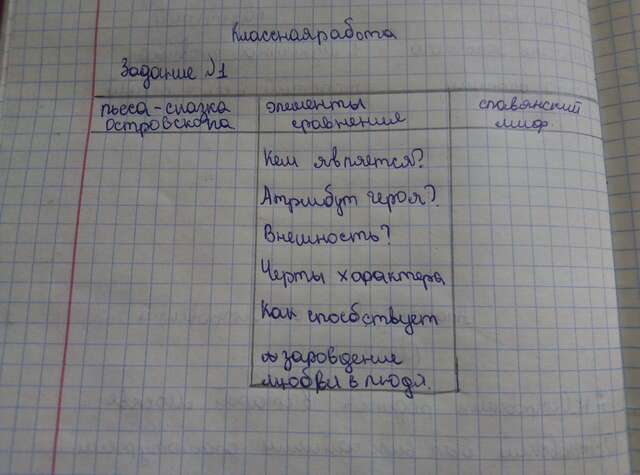 Классная работа
Задание №1
пьеса-сказка
островского
элементы
сравнения
славянский
миф.
Кем является?
Атрибут героя?
Внешность?
Черты характера
Как способствует
зарождение
любви в людя.